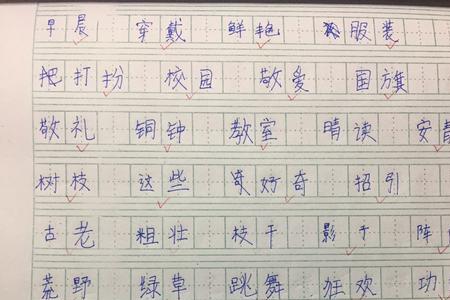 早晨 穿戴 鲜艳 服装
把打扮 校园 敬爱 国旗
敬礼 铜钟 教室 晴读 安
树枝 这些 好奇 招引
古老 粗壮 枝干 影子 阵
荒野 绿草 跳舞 狂欢 功